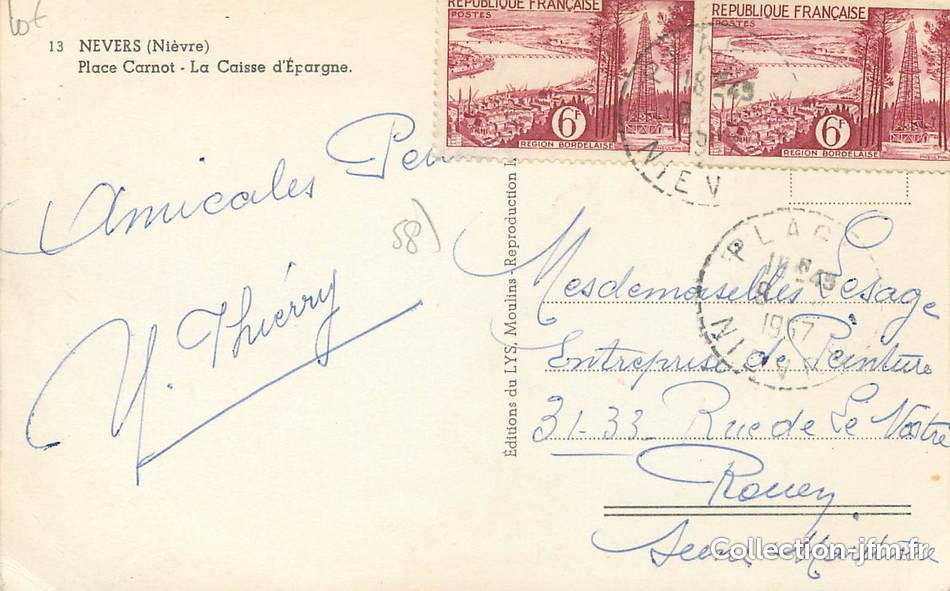 13 NEVERS (Nièvre)
Place Carnot - La Caisse d'Épargne.
RÉPUBLIQUE FRANÇAISE
POSTES
6F
RÉGION BORDELAISE
RÉPUBLIQUE FRANÇAISE
POSTES
6F
RÉGION BORDELAISE
18 H 45
NIEV
Amicales
58)
Y. Thiérry
Éditions du LYS, Moulins - Reproduction
PLAG
18 H 45
1957
Mesdemoiselles Lesage
Entreprise de Peinture
31-33 Rue de Le Nostre
Rouen
Seine Maritime
Collection-jfm.fr